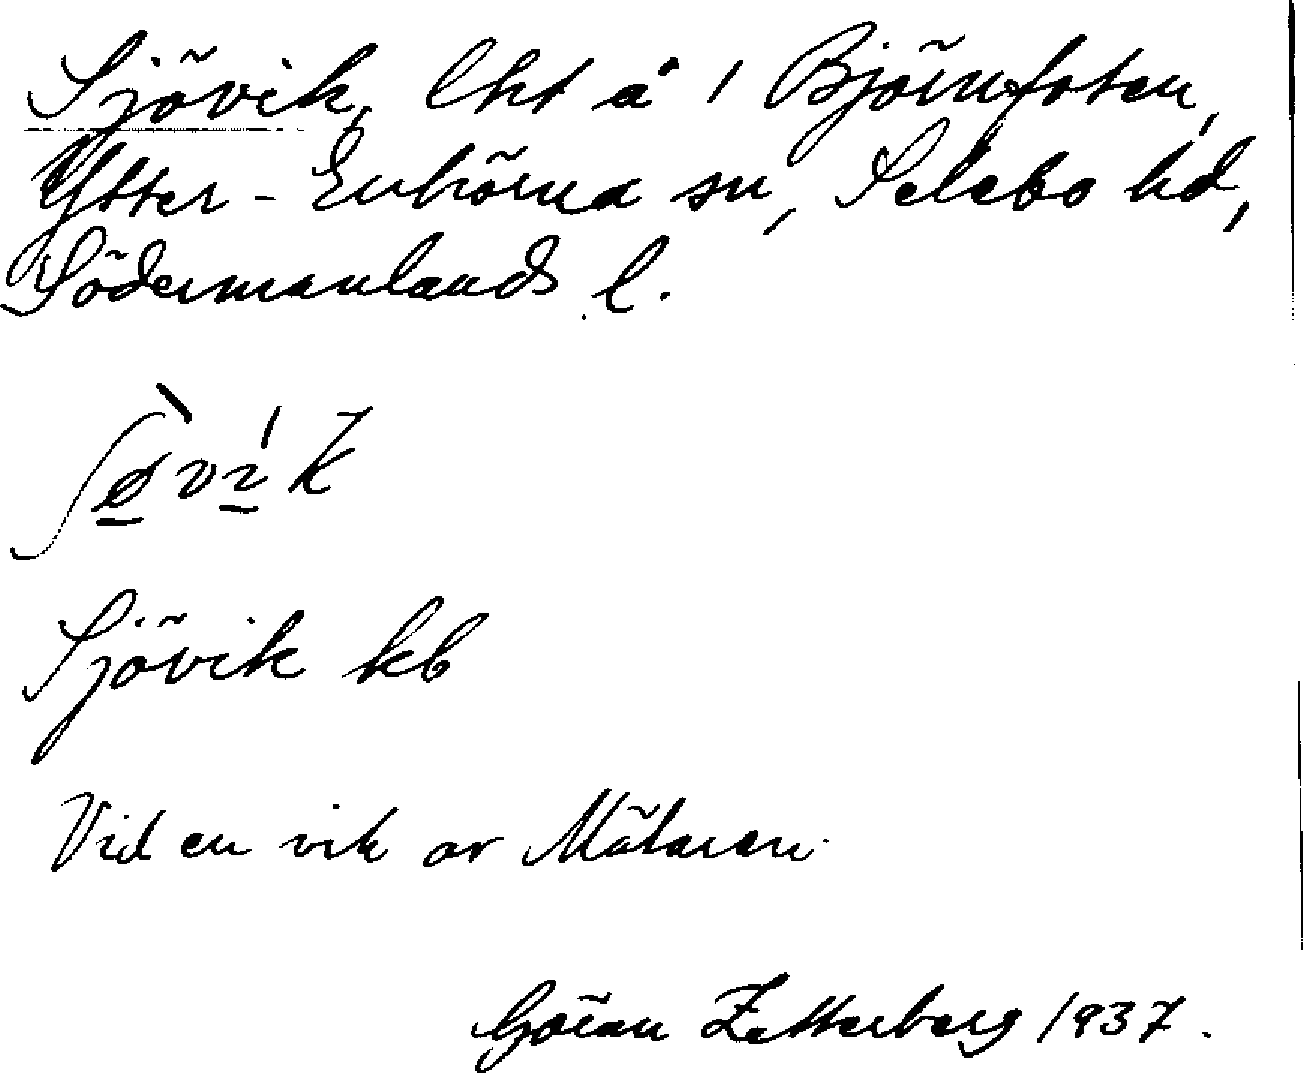 Sjövik, lht å 1 Björnfoten,
Ytter-Enhörna sn, Selebo hd,
Södermanlands l.
ʃø̠̀vı̠́k
Sjövik kb
Vid en vik av Mälaren.
Göran Zetterberg 1937.